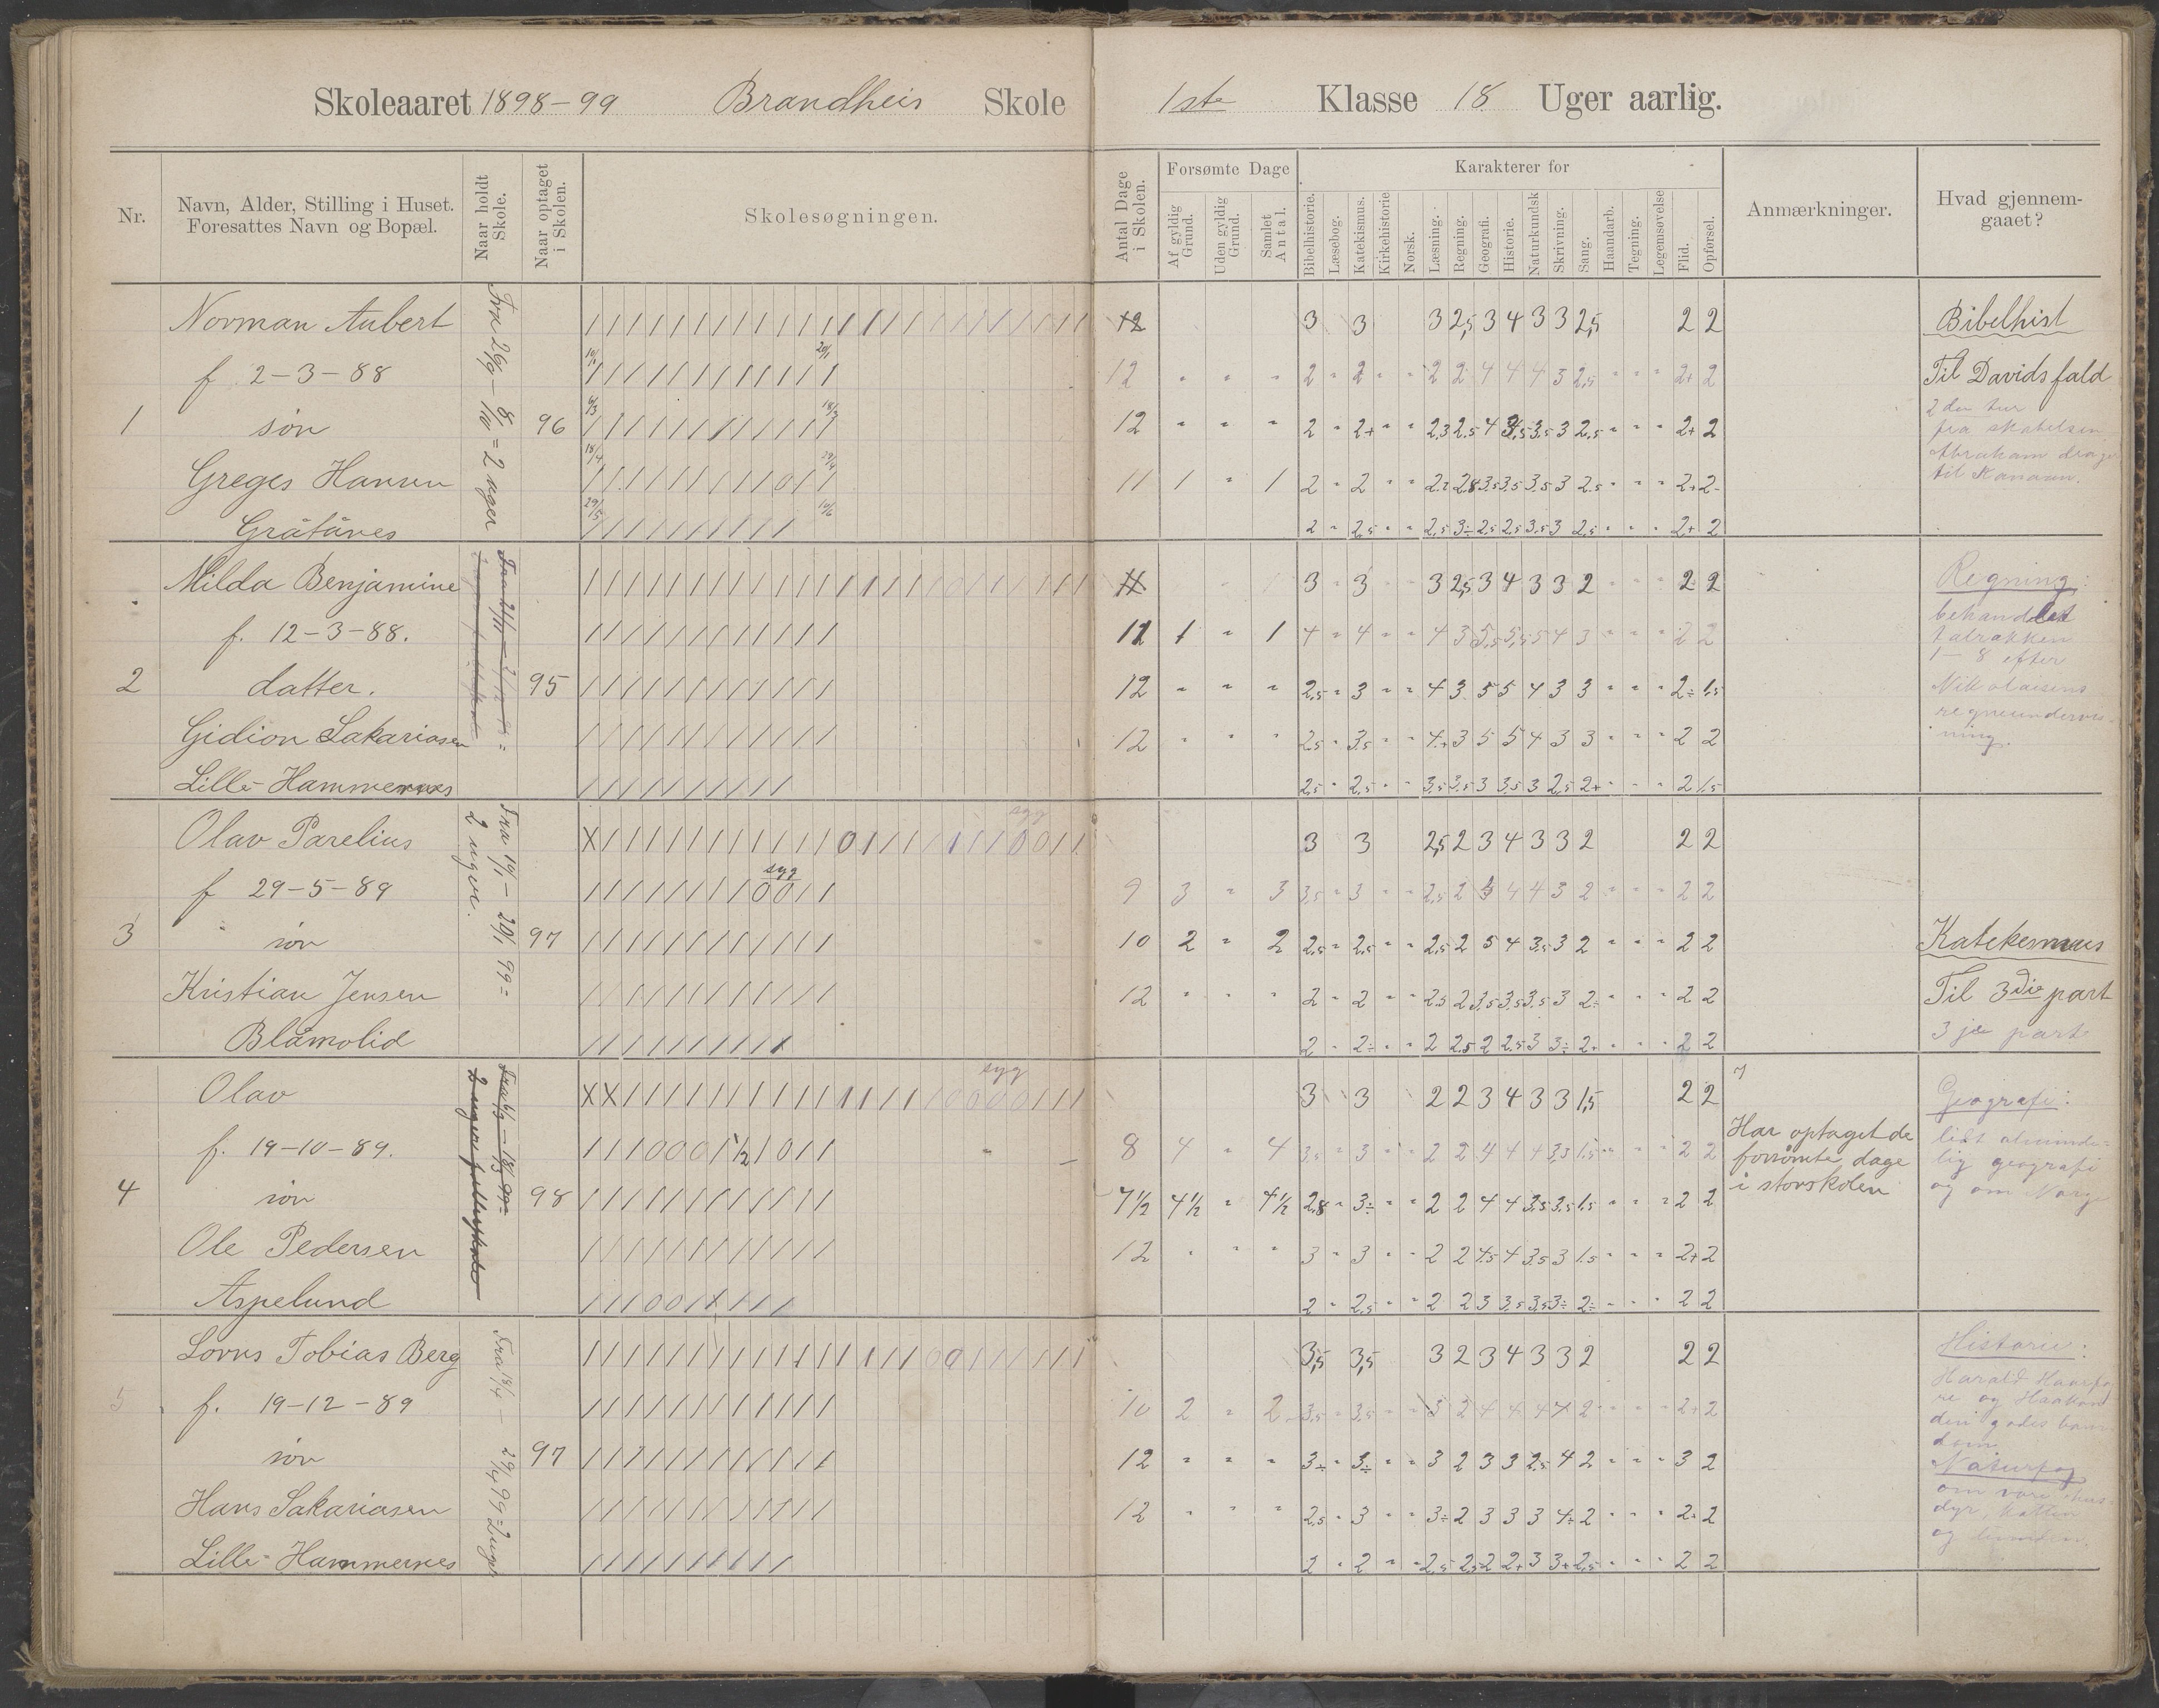 Skoleaaret 1898-99 Brandheis Skole 1ste Klasse 18 Uger aarlig.
Nr.
Navn, Alder, Stilling i Huset.
Foresattes Navn og Bopæl.
Naar holdt
Skole.
Naar optaget
i Skolen.
Skolesøgningen.
Antal Dage
i Skolen.
Forsømte Dage
Af gyldig
Grund.
Uden gyldig
Grund.
Samlet
Antal.
Karakterer for
Bibelhistorie.
Læsebog.
Katekismus.
Kirkehistorie
Norsk.
Læsning.
Regning.
Geografi.
Historie.
Naturkundsk
Skrivning.
Sang.
Haandarb.
Tegning.
Legemsøvelse
Flid.
Opførsel.
Anmærkninger.
Hvad gjennem-
gaaet?
Norman Aubert
f 2-3-88
1 søn 96
Greges Hansen
Gråtånes
3 3 3 2,5 3 4 3 3 2,5 2 2
12 " " " 2 " 2 " " 2 2 4 4 4 3 2,5 " " " 2+ 2
12 " " " 2 " 2+ " "
11 1 " 1 2 " 2 " "
Bibelhist
Til Davids fald
2den tur
fra skabelsen
Abraham drager
til Kanaan.
Milda Benjamine
f. 12-3-88.
2 datter. 95
Gidion Sakariasen
Lille-Hammernes
3 " 3 3 2,5 3 4 3 3 2 2 2
12 " " " 2,5 " 3 " " 4 3 5 5 4 3 3 " " " 2÷ 1,5
12 " " " 2,5 " 3,5 " " 4+ 3 5 5 4 3 3 " " " 2 2
2,5 " 2,5 " " 3,5 3,5 3 3,5 3 2,5 2+ " " " 2 1,5
Regning:
behandlet
talrækken
1-8 efter
Nikolaisens
regneundervis-
ning.
Olav Parelius
f 29-5-89
3 søn 97
Kristian Jensen
Blåmolid
Fra 10/1 - 20/1 99 =
2 uger.
syg
syg
3 3 2,5 2 3 4 3 3 2 2 2
9 3 " 3 3,5 " 3 " " 2,5 2
10 2 " 2 2,5 " 2,5 " " 2,5 2 5 4 3,5 3 2 " " " 2 2
12 " " " 2 " 2 " " 2,5 2 3,5 3,5 3,5 3 2÷ " " " 2 2
2 " 2÷ " " 2 2,5 2 2,5 3 3÷ 2+ " " " 2 2
Katekesmus
Til 3die part
3je part
Olav
f. 19-10-89.
4 søn 98
Ole Pedersen
Aspelund
syg
3 3 2 2 3 4 3 3 1,5 2 2
8 4 " 4 3,5 " 3 " " 2 2 4 4 4 3,5 1,5 " " " 2 2
7 1/2 4 1/2 " 4 1/2 2,8 " 3÷ " " 2 2 4 4 3,5 3,5 1,5 " " " 2 2
12 " " " 3 " 3 " " 2 2 4,5 4 3,5 3 1,5 " " " 2+ 2
2 " 2,5 " " 2 2 3 3,5 3,5 3÷ 2÷ " " " 2 2
Har optaget de
forsømte dage
i storskolen
Geografi:
lidt alminde-
lig geografi
og om Norge
Lorns Tobias Berg
f. 19-12-89
5 søn 97
Hans Sakariasen
Lille-Hammernes
3,5 3,5 3 2 3 4 3 3 2 2 2
10 2 " 2 3,5 " 3,5 " " 3 2 4 4 4 4 2 " " " 2+ 2
12 " " " 3÷ " 3÷ " " 3 2 3 3 2,5 4 2 " " " 3 2
12 " " " 2,5 " 3 " " 3÷ 2 3 3 3 4÷ 2 " " " 2÷ 2
2 " 2 " " 2,5 2,5 2 2+ 3 3+ 2,5 " " " 2 2
Historie:
Harald Haarfag
re og Haakon
den godes barn
dom
Naturfag
om vore hus-
dyr, katten
og hunden.